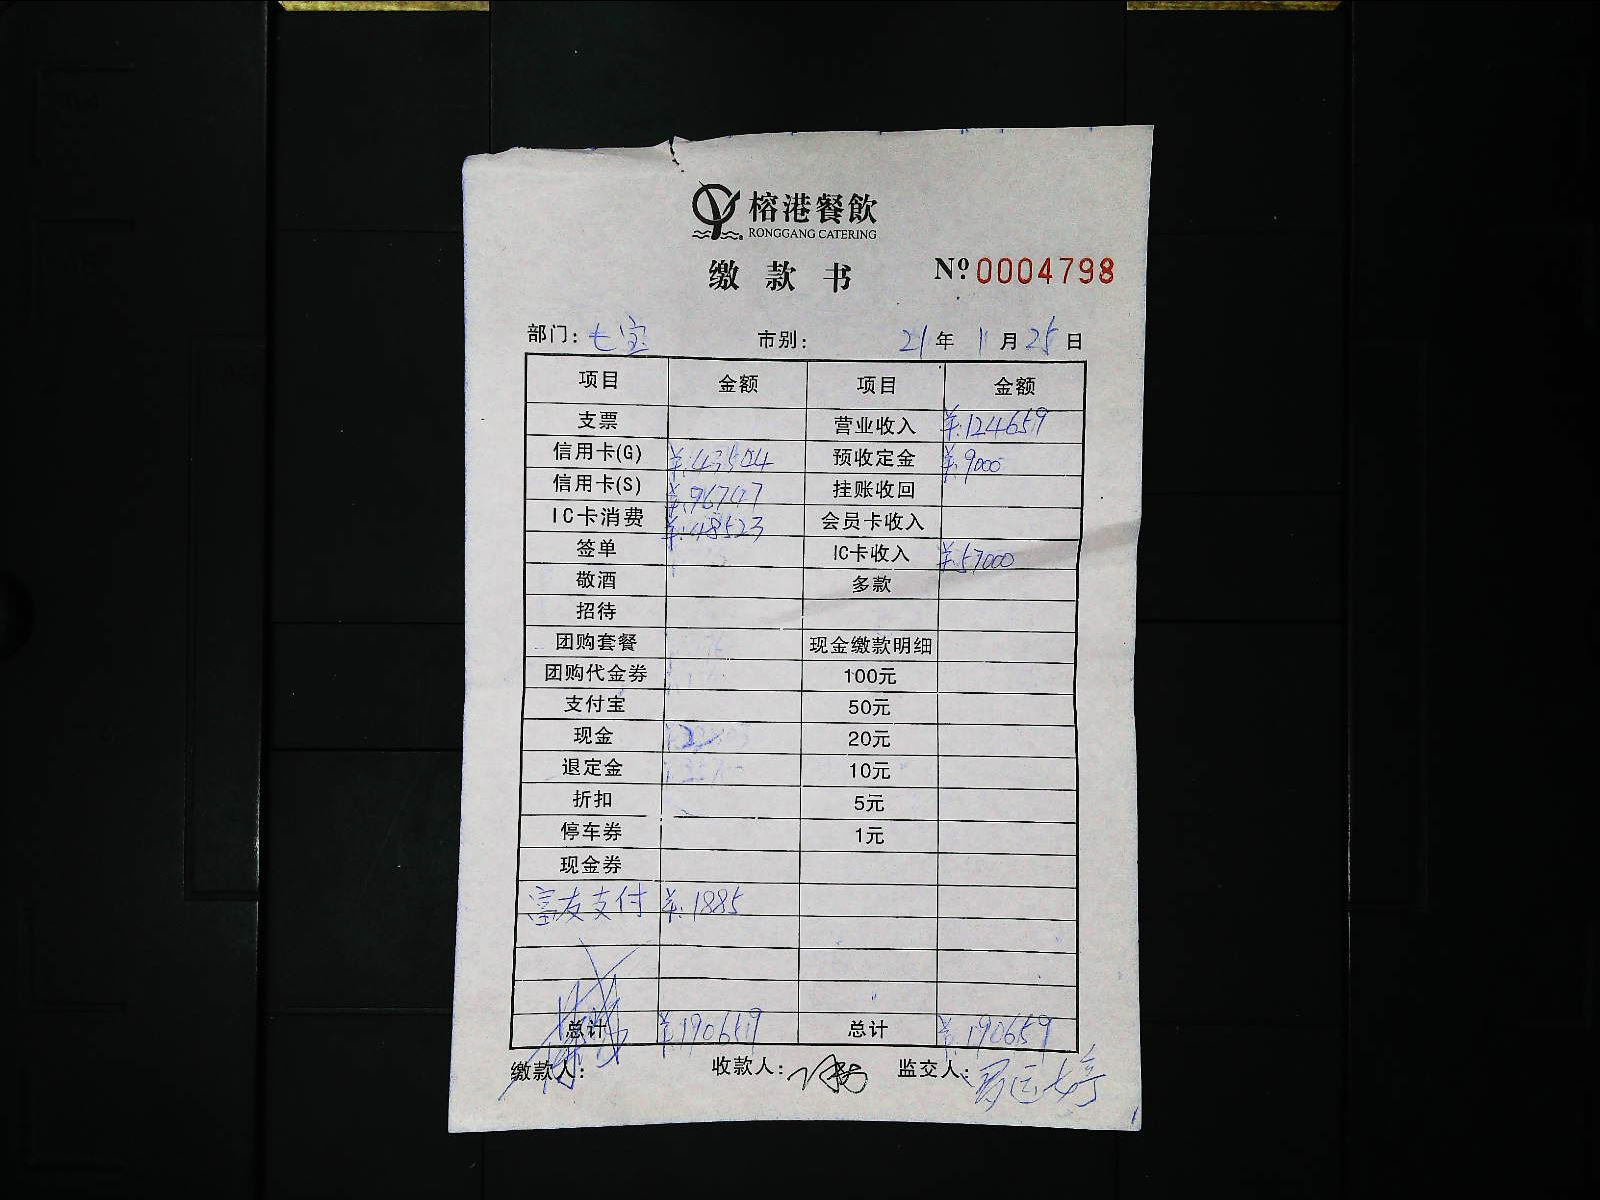 榕港餐飲
RONGGANG CATERING
缴款书 Nº 0004798
部门: 七宝 市别: 21年 1月25日
项目 金额 项目 金额
支票 营业收入 ¥:124659
信用卡(G) ¥:43504 预收定金 ¥:9000
信用卡(S) ¥:96747 挂账收回
IC卡消费 ¥:48523 会员卡收入
签单 IC卡收入 ¥:57000
敬酒 多款
招待
团购套餐 现金缴款明细
团购代金券 100元
支付宝 50元
现金 20元
退定金 10元
折扣 5元
停车券 1元
现金券
富友支付 ¥:1885
总计 ¥:190659 总计 ¥:190659
缴款人: 收款人: 监交人: